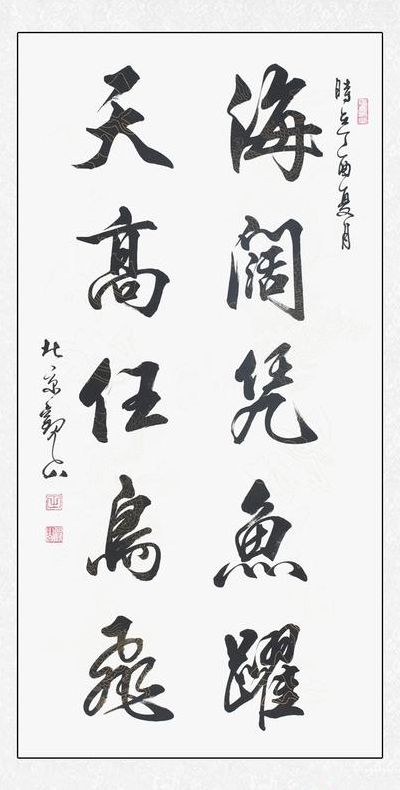 時在丁酉夏月
海闊凭魚躍
天髙任鳥飛
北京